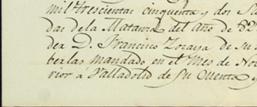 mil trescientas cinquenta y dos
das de la Matanza del Año de 82
der D. Francisco Zozaya de su
berlas mandado en el Mes de Nov
rior á Valladolid de su Cuenta y